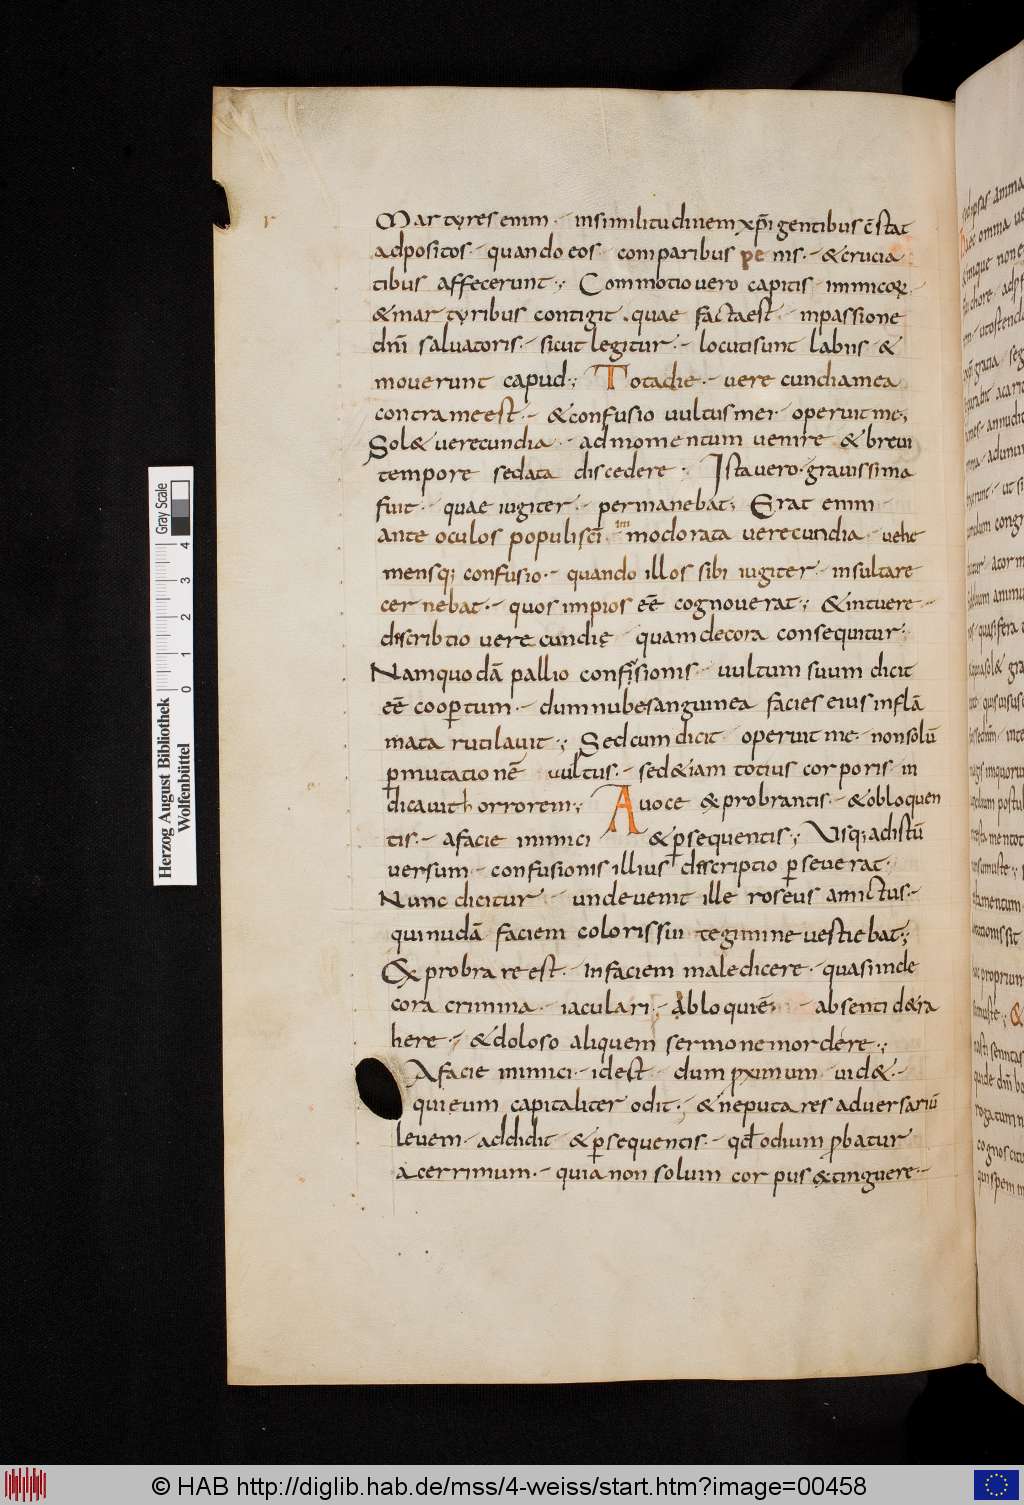 Martyres enim · insimilitudinem xp̄i gentibus c̄stat
adpositos · quando eos · comparibus penis · & crucia
tibus affecerunt ; Commotio vero capitis · inimicoꝝ
& martyribus contigit · quae facta est · inpassione
dn̄i salvatoris · sicut legitur · locuti sunt labiis &
moverunt capud ; Tota die · verecundia mea
contra me est · & confusio vultus mei · operuit me ;
Sol& verecundia · ad momentum venire & brevi
tempore sedata discedere · Ista vero · gravissima
fuit · quae iugiter · permanebat ; Erat enim
ante oculos populi sc̄i inmodorata verecundia · vehe
mensq; confusio · quando illos sibi iugiter · insultare
cernebat · quos impios eē cognoverat ; & intuere
discribtio verecundię quam decora consequitur ;
Nam quodā pallio confusionis · vultum suum dicit
eē coopertum · dum nube sanguinea facies eius inflā
mata rutilavit ; Sed cum dicit operuit me · non solū
ꝑmutationē vultus · sed & iam totius corporis in
dicavit horrorem ; A voce exprobrantis · & obloquen
tis · a facie inimici & ꝑsequentis ; Usq; ad istū
versum · confusionis illius discriptio ꝑseverat ·
Nunc dicitur · unde venit ille roseus amictus ·
qui nudā faciem coloris sui tegimine vestiebat ;
Exprobrare est · In faciem maledicere · quasi inde
cora crimina · iaculari · Abloquiē · absenti d&ra
here · & doloso aliquem sermone mordere ·;
A facie inimici · id est dum ꝓximum vid& ·
qui eum capitaliter odit · & ne putares adversariū
levem · addidit & ꝑsequentis · qđ odium ꝓbatur
acerrimum · quia non solum corpus extinguere ·
Herzog August Bibliothek
Wolfenbüttel
Gray Scale
0 1 2 3 4
© HAB http://diglib.hab.de/mss/4-weiss/start.htm?image=00458